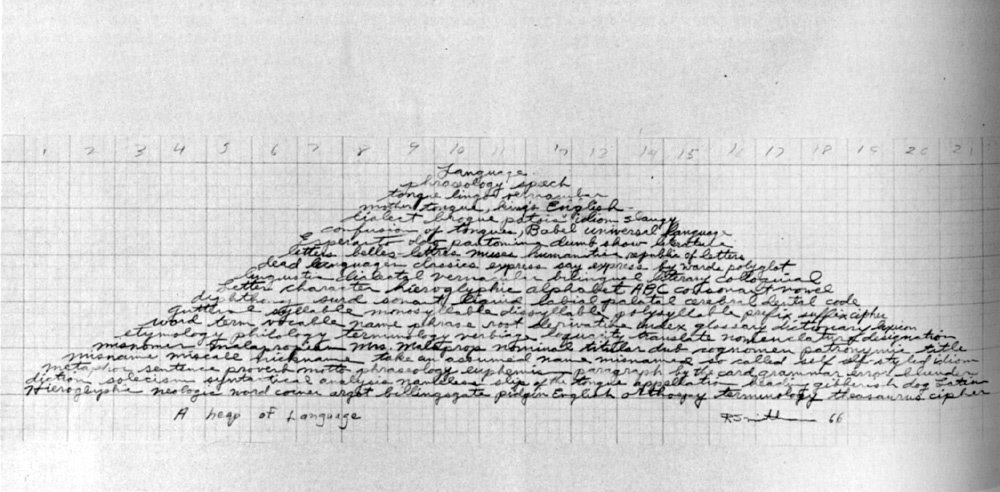 1 2 3 4 5 6 7 8 9 10 11 12 13 14 15 16 17 18 19 20 21
Language
phraseology speech
tongue lingo vernacular
mother tongue, king's English
dialect brogue patois idiom slang
confusion of tongues, Babel universal language
Esperanto pantomime dumb show literature
letters belles-lettres muses humanities republic of letters
dead languages classics express say express by words polyglot
linguistic dialectal vernacular bilingual literary colloquial
letter character hieroglyphic alphabet ABC consonant vowel
diphthong surd sonant liquid labial palatal cerebral dental code
guttural syllable monosyllable dissyllable polysyllable prefix suffix cipher
word term vocable name phrase root derivative index glossary dictionary lexicon
etymology philology terminology verbiage translate nomenclature designation
misnomer malaprop Mrs. Malaprop nominal titular dub cognomen patronymic title
misname miscall nickname take an assumed name misnamed so called self style by idiom
metaphor sentence proverb motto phraseology euphemism paragraph by the card grammar error blunder
diction solecism syntactical analysis nameless slip of the tongue appellation heading gibberish dog Latin
Hieroglyphic neologis word coiner argot billingsgate pidgin English orthoepy terminology thesaurus cipher
A heap of Language
RSmithson 66